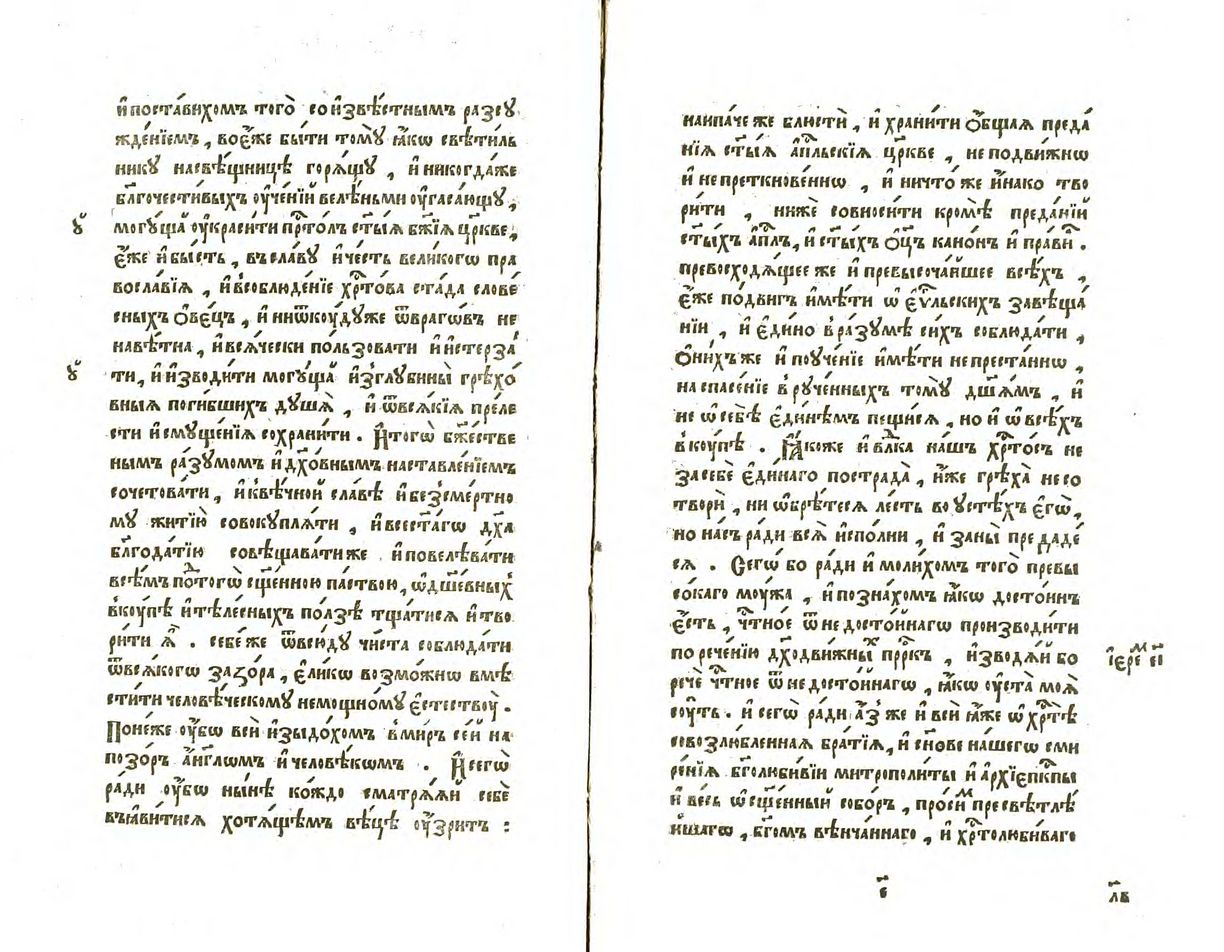 и҆поста́вихомъ того̀ соизвѣ́стнымъ разсꙋ
жде́нїемъ, воє҆́же бы́ти томꙋ̀ ꙗ҆́кѡ свѣти́ль
никꙋ насвѣ́щницѣ горѧ́щꙋ, и҆никогда́же
бл҃гочести́выхъ ᲂу҆че́нїй велѣ́ньми ᲂу҆гаса́ющꙋ,
ꙋ҆̀
могꙋ́ща ᲂу҆краси́ти прⷭ҇то́лъ ст҃ы́ѧ бж҃їѧ цр҃кве,
є҆́же и҆бы́сть, въсла́вꙋ и҆че́сть вели́когѡ пра
восла́вїѧ, и҆всоблюде́нїе хрⷭ҇то́ва ста́да слове́
сныхъ ѻ҆ве́цъ, и҆ниѿкоу́дꙋже ѿврагѡ́въ не
навѣ́тна, и҆всѧ́чески по́льзовати и҆и҆стерза́
ꙋ҆̀
ти, и҆и҆зводи́ти могꙋ́ща и҆з̾глꙋбины̀ грѣхо́
вныѧ поги́бшихъ дꙋ́шѧ, и҆ ѿвсѧ́кїѧ пре́ле
сти и҆смꙋще́нїѧ сохрани́ти. И҆тогѡ̀ бж҃е́стве
нымъ ра́зꙋмомъ и҆дх҃о́внымъ наставле́нїемъ
сочетова́ти, и҆квѣ́чной сла́вѣ и҆без̾сме́ртно
мꙋ житїю̀ совокꙋплѧ́ти, и҆всест҃а́гѡ дх҃а
бл҃года́тїю совѣщава́тиже и҆повелѣва́ти
всѣ́мъ подⷧ҇тогѡ̀ сщ҃е́нною па́ствою, ѡ҆дш҃е́вныхъ
вкоу́пѣ и҆тѣле́сныхъ по́лзѣ тща́тисѧ и҆тво
ри́ти ѧ҆̀. себе́ же ѿвсю́дꙋ чи́ста соблюда́ти
ѿвсѧ́когѡ зазо́ра, є҆ли́кѡ возмо́жнѡ вмѣ
сти́ти человѣ́ческомꙋ немощно́мꙋ є҆стествоу̀.
Поне́же ᲂу҆́бѡ всѝ и҆зыдо́хомъ вми́ръ се́й на
позо́ръ а҆́нг҃лѡмъ и҆человѣ́кѡмъ. И҆сегѡ̀
ра́ди ᲂу҆́бѡ ны́нѣ ко́ждо сматрѧ́ѧй себѐ
въꙗ҆ви́тисѧ хотѧ́щемъ вѣ́цѣ ᲂу҆́зритъ :
наипа́че же блюстѝ, и҆ храни́ти ѻ҆́бщаѧ преда́
нїѧ ст҃ы́ѧ а҆пⷭ҇льскїѧ цр҃кве, не подви́жнѡ
и҆ непреткнове́ннѡ, и҆ ничто́ же и҆́нако тво
ри́ти, ниже́ совноси́ти кромѣ̀ преда́нїй
ст҃ы́хъ а҆пⷭ҇лъ, и҆ ст҃ы́хъ ѻ҆ц҃ъ кано́нъ и҆ пра́вил.
превосходѧ́щее же и҆ превысоча́йшее всѣ́хъ,
є҆́же по́двигъ и҆мѣ́ти ѡ҆ є҆ѵⷢ҇льскихъ завѣща́
нїи, и҆ є҆ди́но вра́зꙋмѣ си́хъ соблюда́ти,
ѻ҆ни́хъ же и҆ поꙋче́нїе и҆мѣ́ти непреста́ннѡ,
на спасе́нїе врꙋче́нныхъ томꙋ̀ дш҃а́мъ, и҆
не ѡ҆себѣ̀ є҆ди́нѣмъ пещи́сѧ, но и҆ ѡ҆ всѣ́хъ
вкоу́пѣ. Ꙗ҆́коже и҆ влⷣка на́шъ хрⷭ҇то́съ не
засебѐ є҆ди́наго пострада̀, и҆́же грѣха̀ несо
творѝ, ни ѡ҆брѣ́тесѧ ле́сть во ᲂустѣ́хъ є҆гѡ̀,
но на́съ ра́ди всѧ̀ и҆спо́лни, и҆ заны̀ предаде́
сѧ. Сегѡ̀ бо ра́ди и҆ моли́хомъ того̀ превы
со́каго моу́жа, и҆ позна́хомъ ꙗ҆́кѡ досто́инъ
є҆́сть, чⷭ҇тно́е ѿ недосто́йнагѡ производи́ти
по рече́нїю дх҃одви́жныⷯ прⷪ҇ркъ, и҆зводѧ́й бо
і҆ере́ⷨ е҃і
речѐ чⷭ҇тно́е ѿ недосто́йнагѡ, ꙗ҆́кѡ ᲂу҆ста̀ моѧ̀
соу́ть. и҆ сегѡ̀ ра́ди а҆́зъ же и҆ всѝ ꙗ҆́же ѡ҆ хрⷭ҇тѣ̀
совозлю́бленнаѧ бра́тїѧ, и҆ сн҃о́ве на́шегѡ сми
ре́нїѧ бг҃олюби́вїи митрополи́ты и҆ а҆рхїепⷭ҇кпы
и҆ ве́сь ѡ҆сщ҃е́нный собо́ръ, про́сиⷨ пресвѣтлѣ́
йшагѡ, бг҃омъ вѣнча́ннаго, и҆ хрⷭ҇толюби́ваго
є҃
л҃в